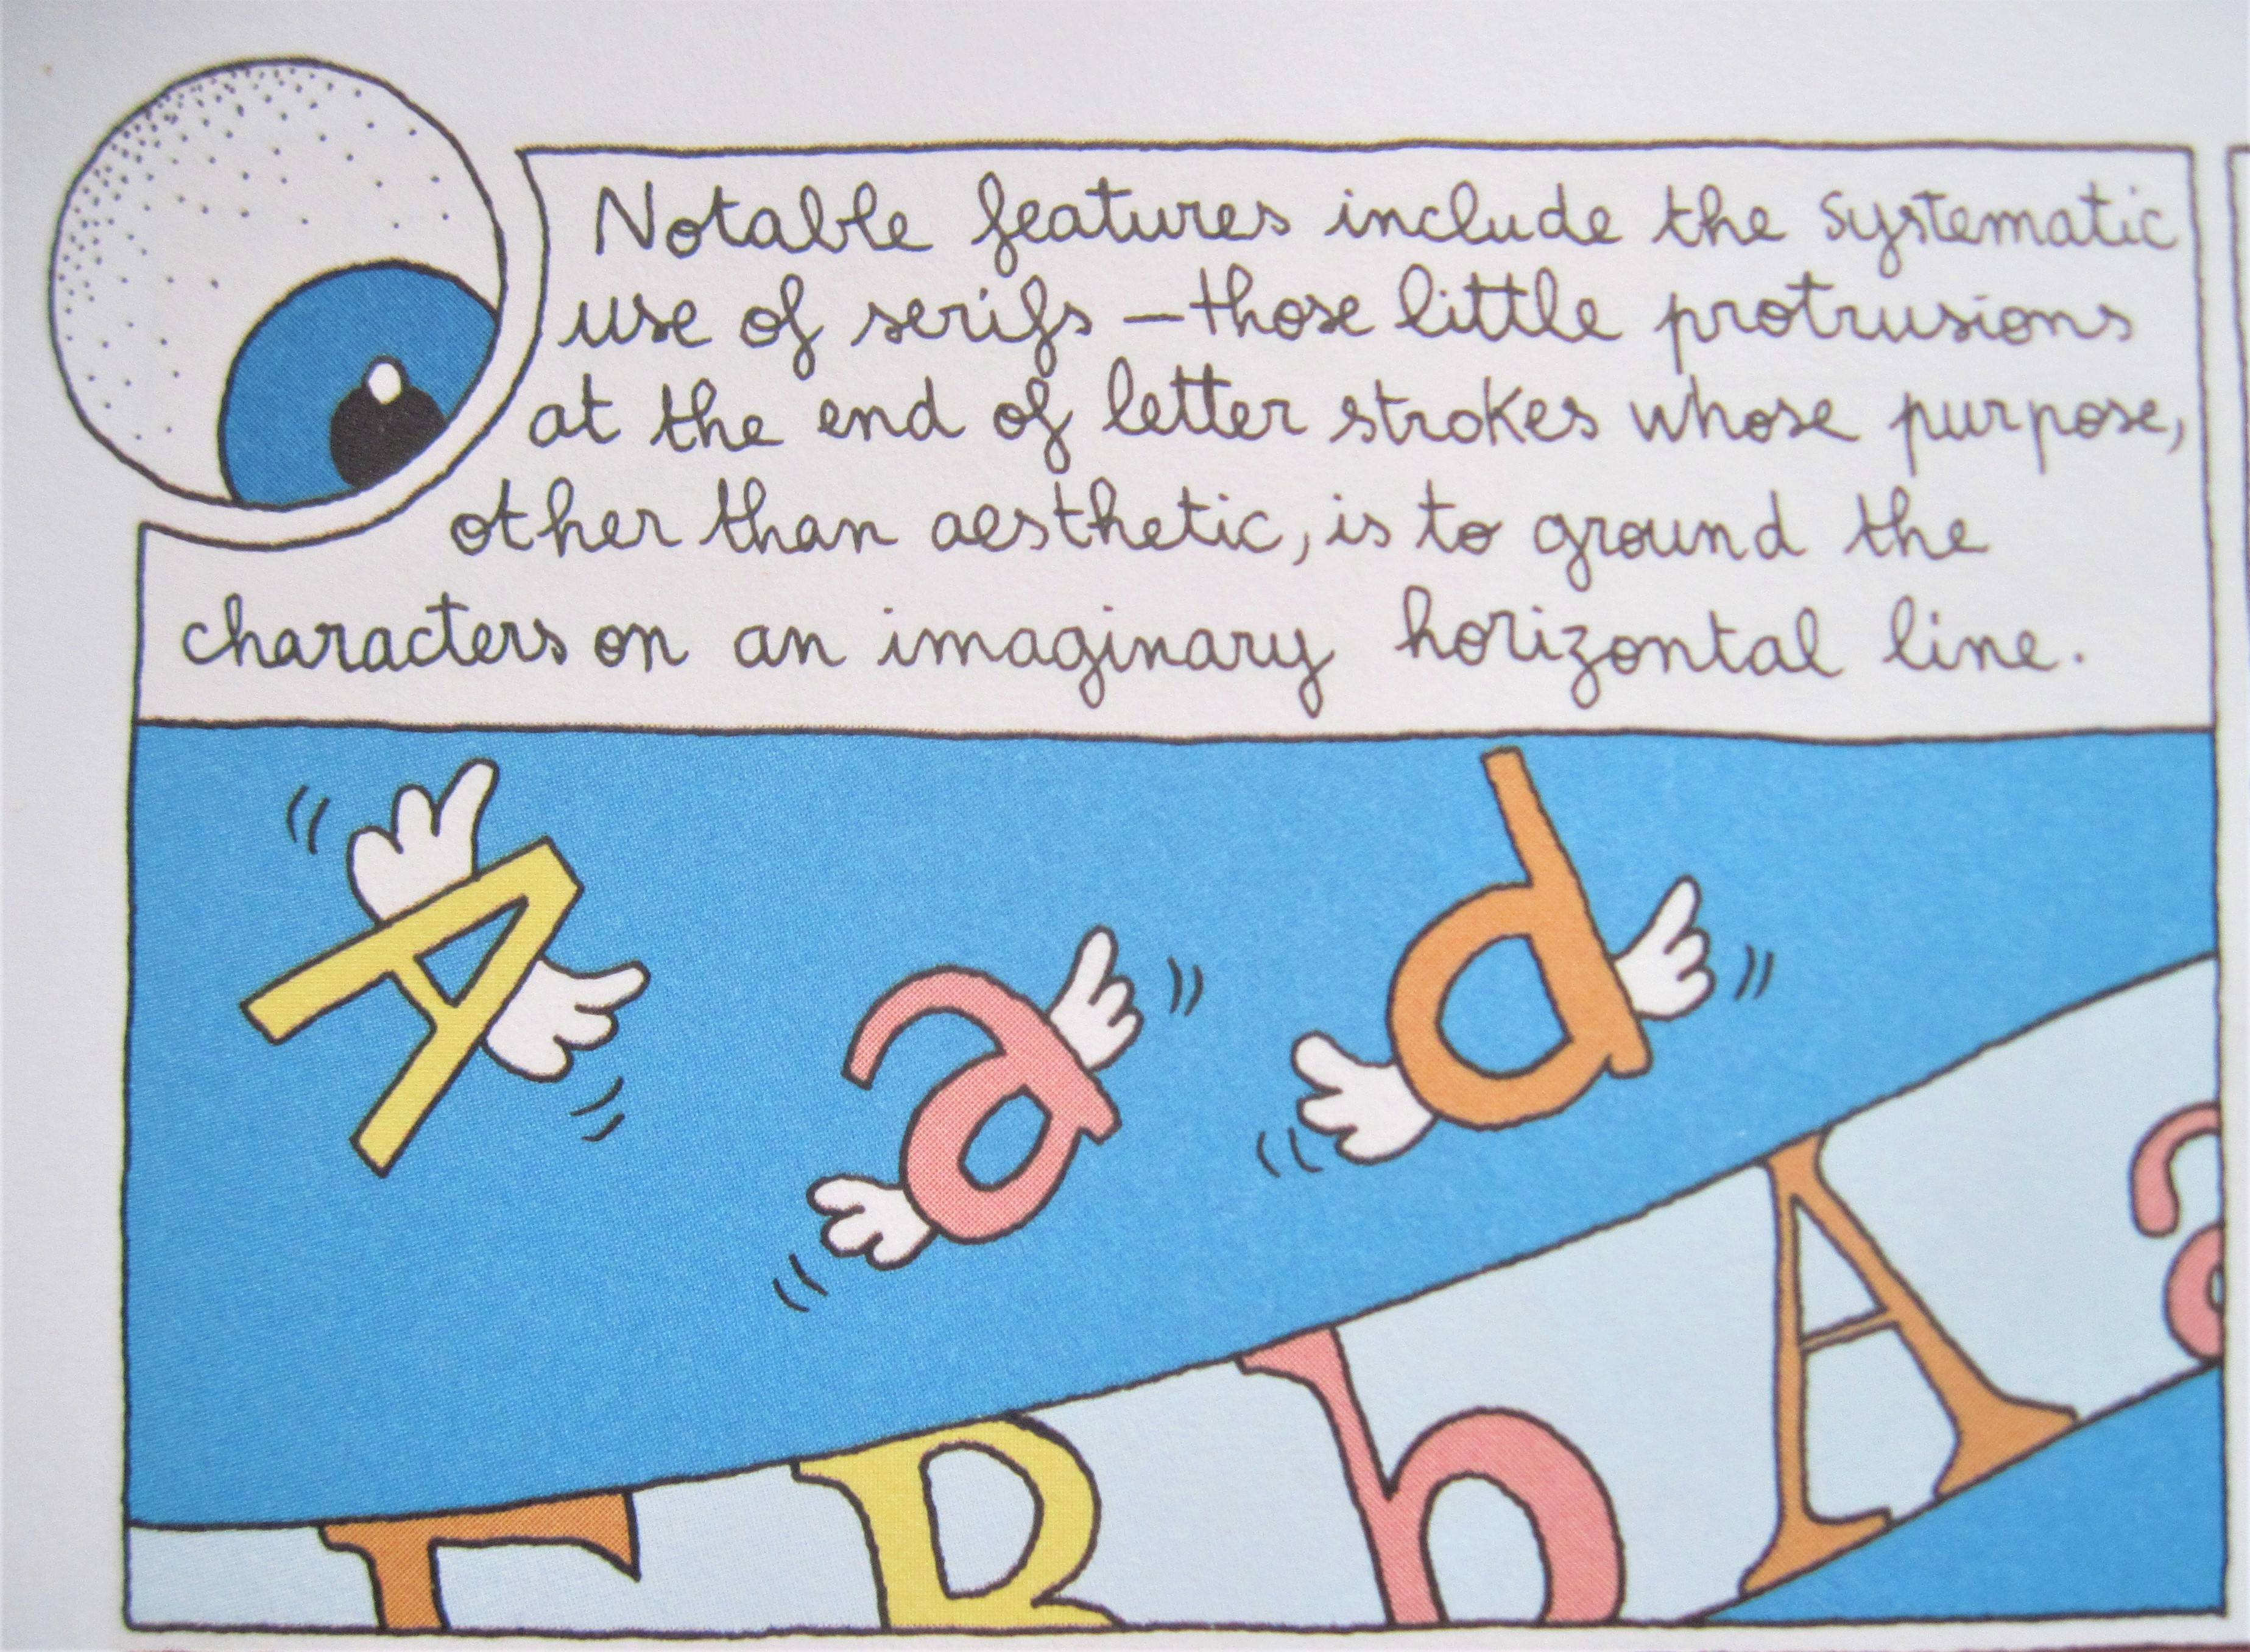 Notable features include the systematic
use of serifs – those little protrusions
at the end of letter strokes whose purpose,
other than aesthetic, is to ground the
characters on an imaginary horizontal line.
A a d
r B h A a